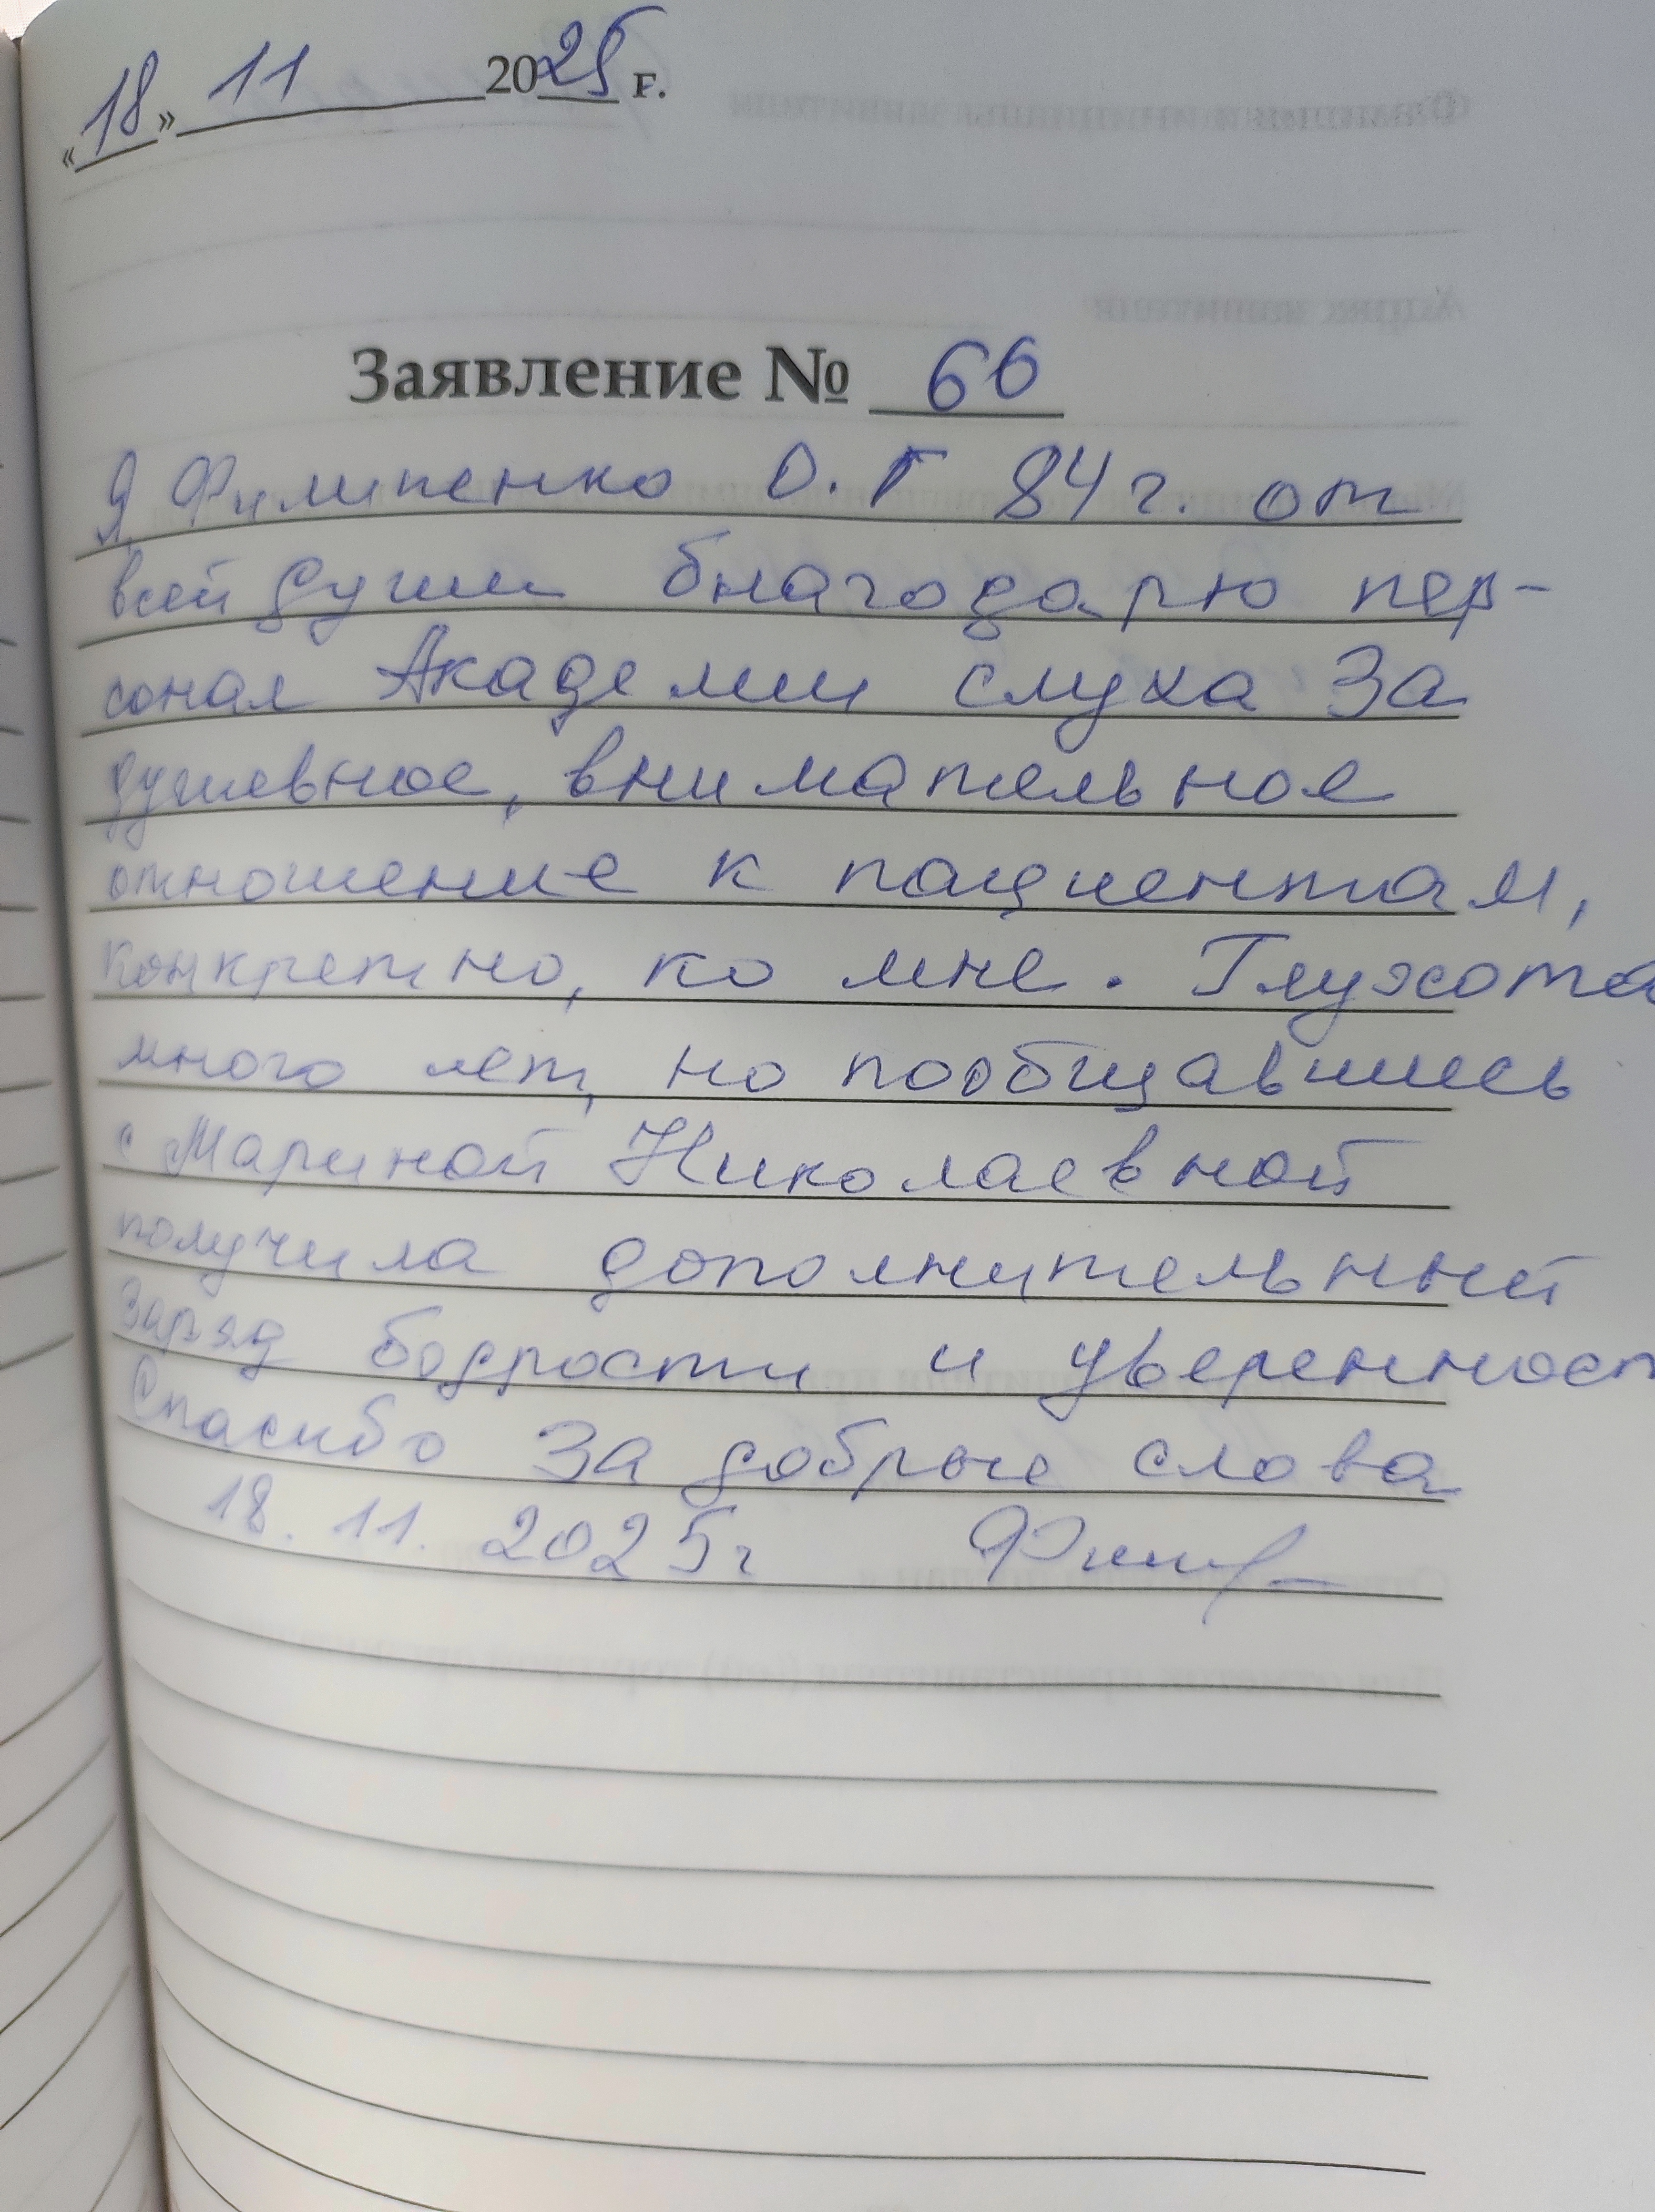 «18» 11 2025 г.
Заявление № 66
Я, Филипенко О.Г 84 г. от
всей души благодарю пер-
сонал Академии слуха за
душевное, внимательное
отношение к пациентам,
конкретно, ко мне. Глухота
много лет, но пообщавшись
с Мариной Николаевной
получила дополнительный
заряд бодрости и уверенност
Спасибо за добрые слова
18. 11. 2025 г